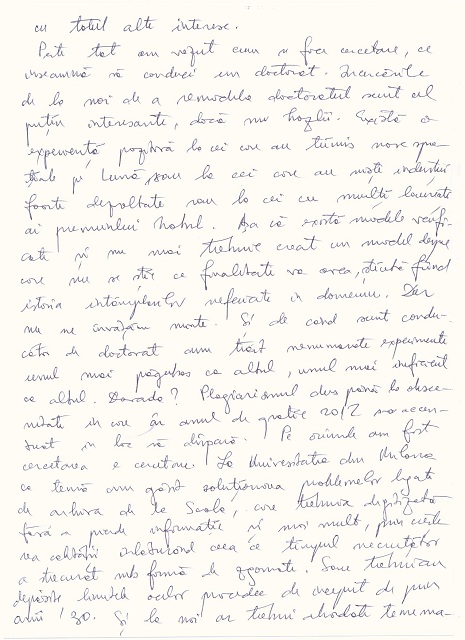 cu totul alte interese.
Peste tot am văzut cum se face cercetare, ce
înseamnă să conduci un doctorat. Încercările
de la noi de a remodela doctoratul sunt cel
puțin interesante, dacă nu hazlii. Există o
experiență pozitivă la cei care au trimis nave spa-
țiale pe Lună, sau la cei care au niște industrii
foarte dezvoltate sau la cei cu mulți laureați
ai premiului Nobel. Așa că există modele verifi-
cate și nu mai trebuie creat un model despre
care nu se știe ce finalitate va avea, știută fiind
istoria întâmplărilor nefericite în domeniu. Dar
nu ne învățăm minte. Și de când sunt condu-
cător de doctorat am trăit nenumărate experimente
unul mai păgubos ca altul, unul mai ineficient
ca altul. Dovada? Plagiarismul dus până la obsce-
nitate în care în anul de grație 2012 s-a accen-
tuat în loc să dispară. Pe oriunde am fost
cercetarea e cercetare. La Universitatea din Milano
ca temă am găsit soluționarea problemelor legate
de arhiva de la Scala, care trebuia digitizată
fără a pierde informație și mai mult, prin
rea calității înlăturând ceea ce timpul necruțător
a trecut sub formă de zgomote. Sau trebuiau
depășite limitele acelor procedee de început de prin
anii '30. Și la noi ar trebui abordate teme ma-